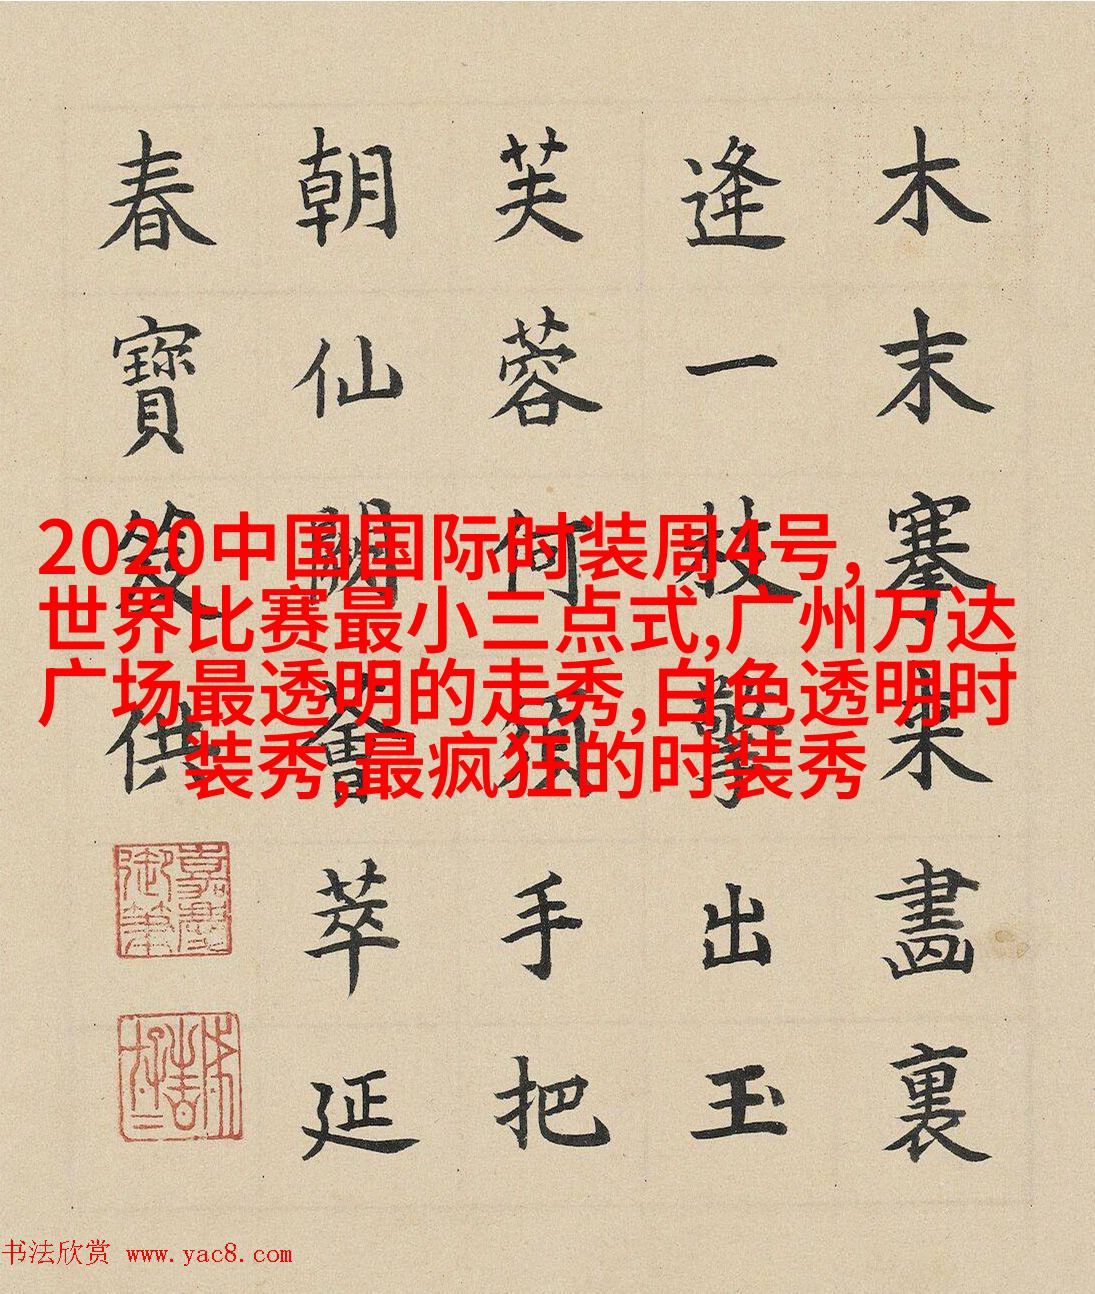 木末搴来畫裏
逢一枝擎出玉
芙蓉何須手把
朝仙薈萃延
春寶笈供
嘉慶御筆
2020中国国际时装周4号,
世界比赛最小三点式,广州万达
广场最透明的走秀,白色透明时
装秀,最疯狂的时装秀
书法欣赏 www.yac8.com